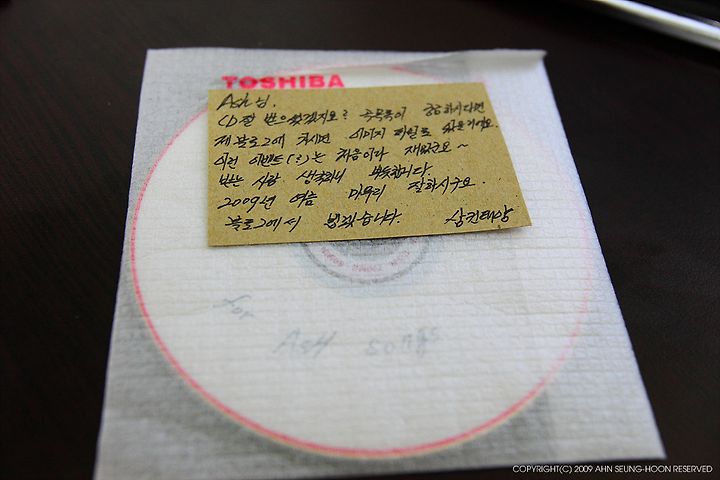 TOSHIBA
Ash님.
CD 잘 받으셨겠지요? 곡목록이 궁금하시다면
제 블로그에 가시면 이미지 파일로 있을거에요.
이런 이벤트(?)는 처음이라 재밌군요~
받는 사람 생각하니 뿌듯합니다.
2009년 여름 마무리 잘하시구요.
블로그에서 뵙겠습니다.
for
Ash songs
COPYRIGHT(C) 2009 AHN SEUNG-HOON RESERVED